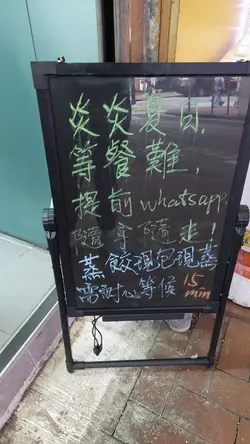 炎炎夏日,
等餐難,
提前whatsapp,
隨拿隨走!
蒸餃現包現蒸
需耐心等候 15 min